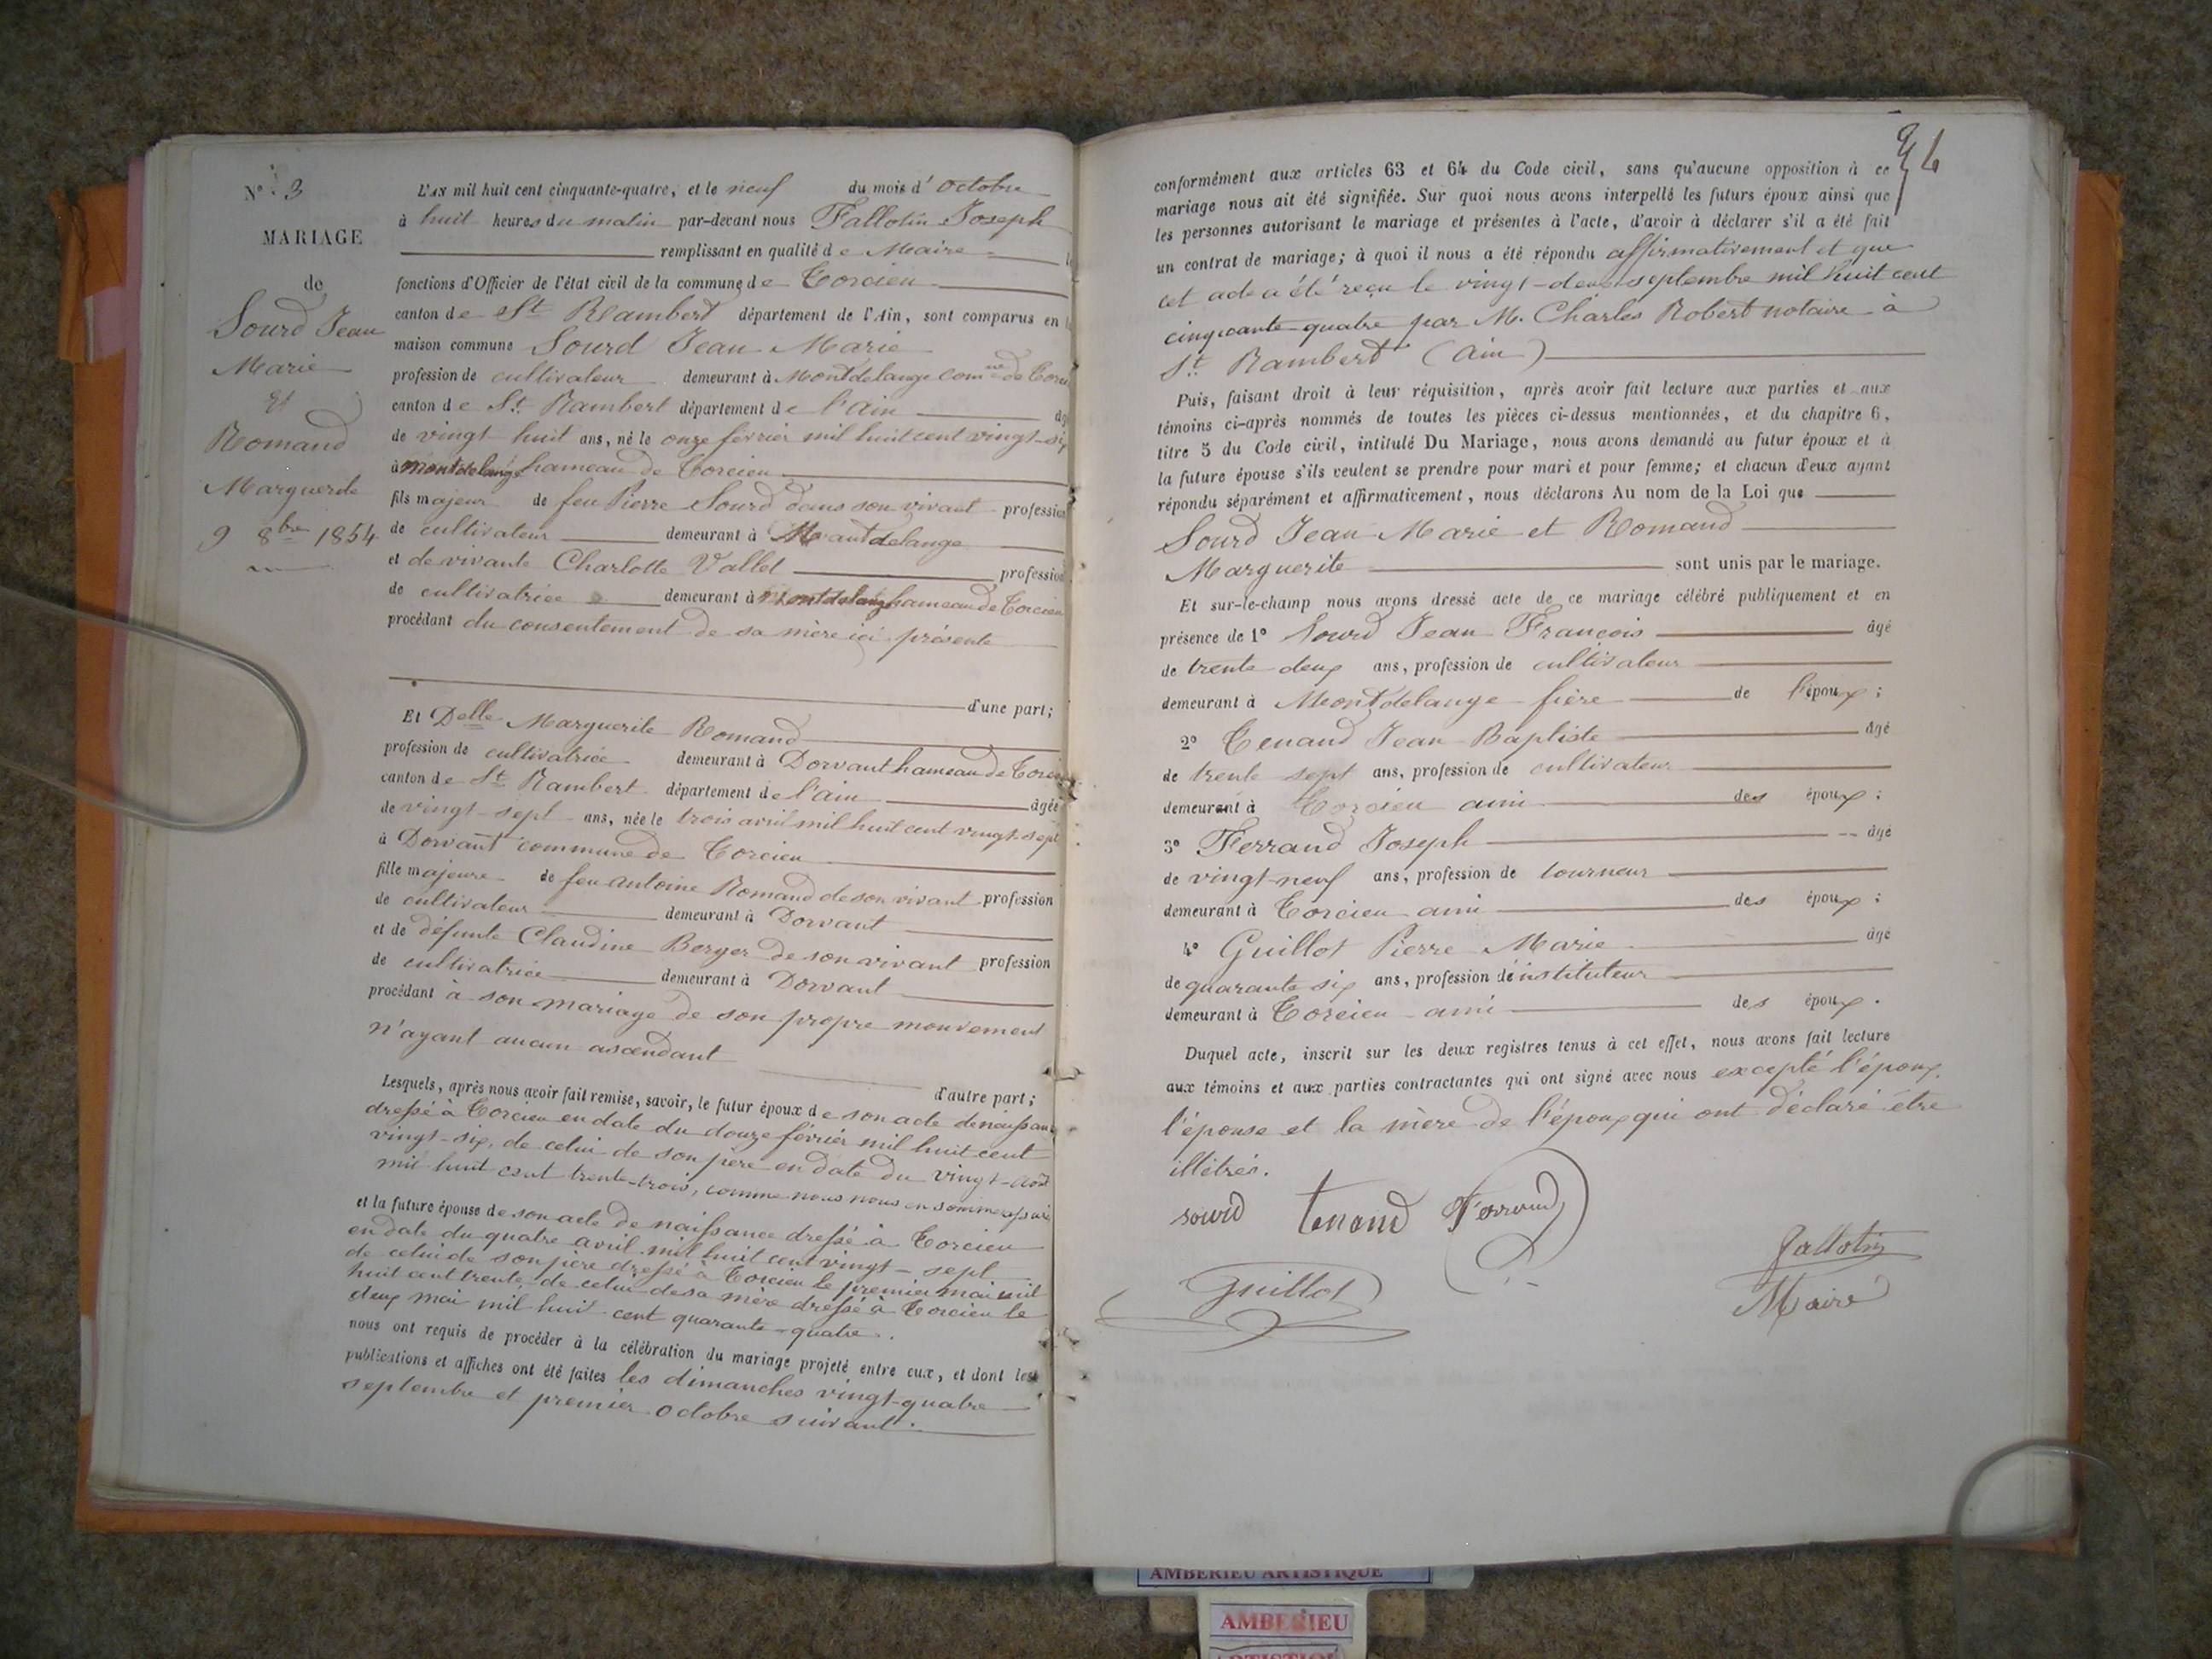 N° 3
MARIAGE
de
Sourd Jean
Marie
Et
Romand
Marguerite
9 8bre 1854
L'AN mil huit cent cinquante-quatre, et le neuf du mois d'octobre
à huit heures du matin par-devant nous Fallotin Joseph
remplissant en qualité de Maire
fonctions d'Officier de l'état civil de la commune de Torcieu
canton de St Rambert département de l'Ain, sont comparus en
maison commune Sourd Jean Marie
profession de cultivateur demeurant à Montdelange comne de
canton de St Rambert département de l'ain
de vingt-huit ans, né le onze février mil huit cent vingt-six
à montdelange hameau de Torcieu
fils majeur de feu Pierre Sourd dans son vivant profession
de cultivateur demeurant à Montdelange
et de vivante Charlotte Vallet profession
de cultivatrice demeurant à Montdelange hameau de Torcieu
procédant du consentement de sa mère ici présente
d'une part;
Et Delle Marguerite Romand
profession de cultivatrice demeurant à Dorvant hameau de
canton de St Rambert département de l'ain âgée
de vingt-sept ans, née le trois avril mil huit cent vingt-sept
à Dorvant commune de Torcieu
fille majeure de feu Antoine Romand de son vivant profession
de cultivateur demeurant à Dorvant
et de défunte Claudine Berger de son vivant profession
de cultivatrice demeurant à Dorvant
procédant à son mariage de son propre mouvement
n'ayant aucun ascendant
d'autre part;
Lesquels, après nous avoir fait remise, savoir, le futur époux de son acte de naissance
dressé à Torcieu en date du douze février mil huit cent
vingt-six, de celui de son père en date du vingt-août
mil huit cent trente-trois, comme nous nous en sommes
et la future épouse de son acte de naissance dressé à Torcieu
en date du quatre avril mil huit cent vingt-sept
de celui de son père dressé à Torcieu le premier mai mil
huit cent trente, de celui de sa mère dressé à Torcieu le
deux mai mil huit cent quarante-quatre.
nous ont requis de procéder à la célébration du mariage projeté entre eux, et dont les
publications et affiches ont été faites les dimanches vingt-quatre
septembre et premier octobre suivant.
conformément aux articles 63 et 64 du Code civil, sans qu'aucune opposition à ce
mariage nous ait été signifiée. Sur quoi nous avons interpellé les futurs époux ainsi que
les personnes autorisant le mariage et présentes à l'acte, d'avoir à déclarer s'il a été fait
un contrat de mariage; à quoi il nous a été répondu affirmativement et que
cet acte a été reçu le vingt-deux septembre mil huit cent
cinquante-quatre par M. Charles Robert notaire à
St Rambert (Ain)
Puis, faisant droit à leur réquisition, après avoir fait lecture aux parties et aux
témoins ci-après nommés de toutes les pièces ci-dessus mentionnées, et du chapitre 6,
titre 5 du Code civil, intitulé Du Mariage, nous avons demandé au futur époux et à
la future épouse s'ils veulent se prendre pour mari et pour femme; et chacun d'eux ayant
répondu séparément et affirmativement, nous déclarons Au nom de la Loi que
Sourd Jean Marie et Romand
Marguerite sont unis par le mariage.
Et sur-le-champ nous avons dressé acte de ce mariage célébré publiquement et en
présence de 1° Sourd Jean François âgé
de trente deux ans, profession de cultivateur
demeurant à Montdelange frère de l'époux;
2° Tenand Jean Baptiste âgé
de trente sept ans, profession de cultivateur
demeurant à Torcieu ami des époux;
3° Ferrand Joseph âgé
de vingt-neuf ans, profession de tourneur
demeurant à Torcieu ami des époux;
4° Guillot Pierre Marie âgé
de quarante six ans, profession d'instituteur
demeurant à Torcieu ami des époux.
Duquel acte, inscrit sur les deux registres tenus à cet effet, nous avons fait lecture
aux témoins et aux parties contractantes qui ont signé avec nous excepté l'époux,
l'épouse et la mère de l'époux qui ont déclaré être
illétrés.
sourd Tenand Ferrand
Fallotin
Guillot
Maire
AMBERIEU ARTISTIQUE
AMBERIEU
ARTISTIQUE